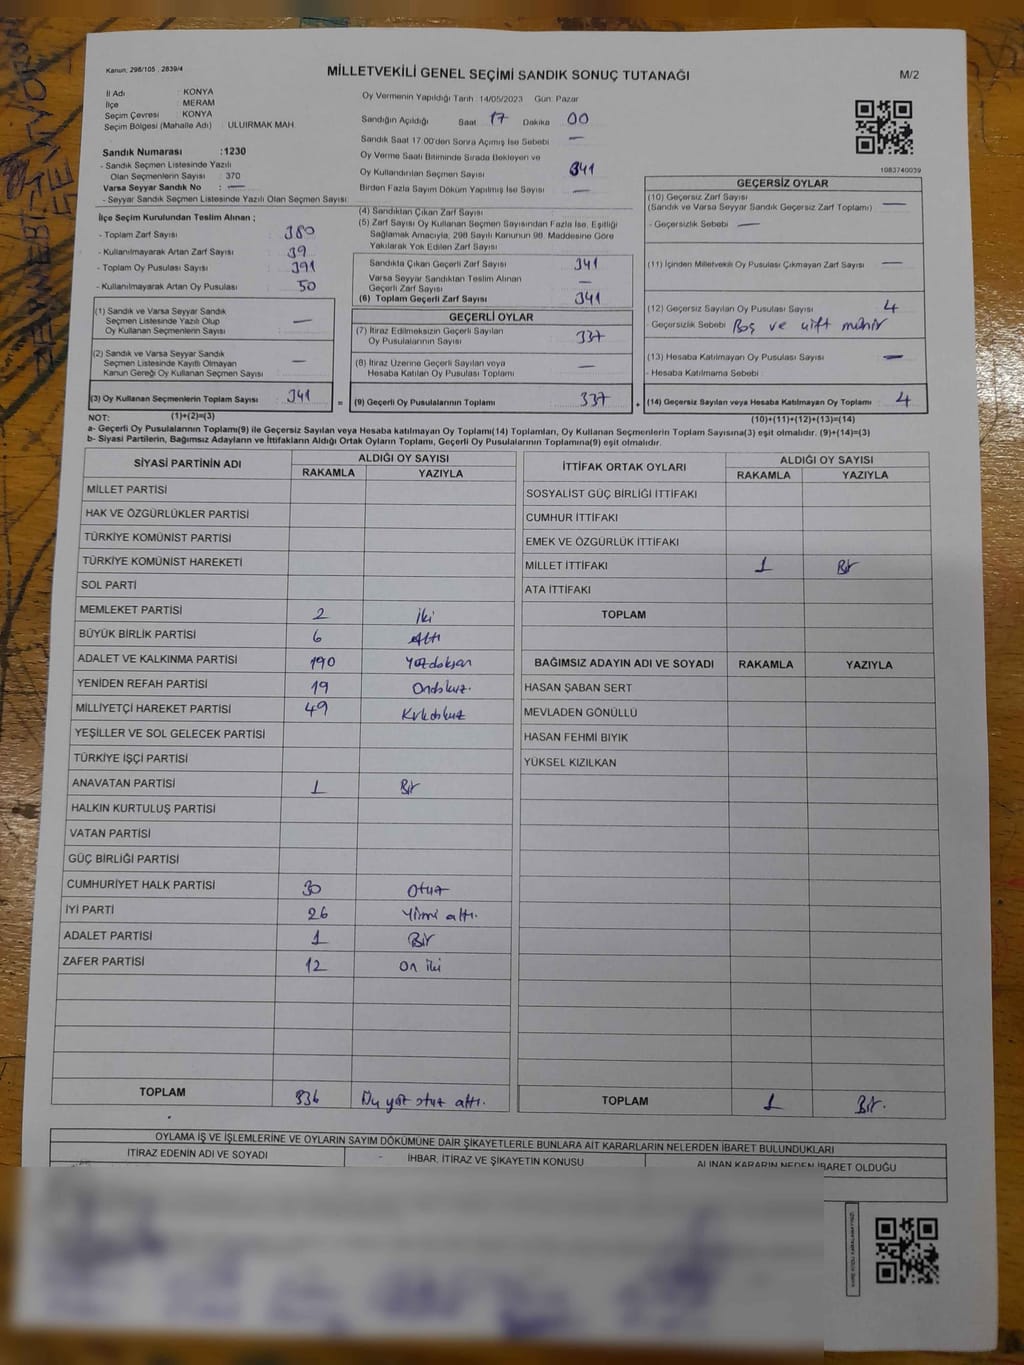 Kanun: 298/105 , 2839/4
MİLLETVEKİLİ GENEL SEÇİMİ SANDIK SONUÇ TUTANAĞI
M/2
İl Adı : KONYA
İlçe : MERAM
Seçim Çevresi : KONYA
Seçim Bölgesi (Mahalle Adı) : ULUIRMAK MAH.
Oy Vermenin Yapıldığı Tarih: 14/05/2023 Gün: Pazar
Sandığın Açıldığı Saat 17 Dakika 00
Sandık Saat 17:00'den Sonra Açılmış İse Sebebi —
Oy Verme Saati Bitiminde Sırada Bekleyen ve
Oy Kullandırılan Seçmen Sayısı 341
Birden Fazla Sayım Döküm Yapılmış İse Sayısı —
1083740039
Sandık Numarası :1230
- Sandık Seçmen Listesinde Yazılı
Olan Seçmenlerin Sayısı : 370
Varsa Seyyar Sandık No : —
- Seyyar Sandık Seçmen Listesinde Yazılı Olan Seçmen Sayısı:
İlçe Seçim Kurulundan Teslim Alınan ;
- Toplam Zarf Sayısı 380
- Kullanılmayarak Artan Zarf Sayısı 39
- Toplam Oy Pusulası Sayısı 391
- Kullanılmayarak Artan Oy Pusulası 50
(1) Sandık ve Varsa Seyyar Sandık
Seçmen Listesinde Yazılı Olup
Oy Kullanan Seçmenlerin Sayısı —
(2) Sandık ve Varsa Seyyar Sandık
Seçmen Listesinde Kayıtlı Olmayan
Kanun Gereği Oy Kullanan Seçmen Sayısı —
(3) Oy Kullanan Seçmenlerin Toplam Sayısı 341 =
(4) Sandıktan Çıkan Zarf Sayısı
(5) Zarf Sayısı Oy Kullanan Seçmen Sayısından Fazla İse, Eşitliği
Sağlamak Amacıyla, 298 Sayılı Kanunun 98. Maddesine Göre
Yakılarak Yok Edilen Zarf Sayısı
Sandıkta Çıkan Geçerli Zarf Sayısı 341
Varsa Seyyar Sandıktan Teslim Alınan
Geçerli Zarf Sayısı —
(6) Toplam Geçerli Zarf Sayısı 341
GEÇERLİ OYLAR
(7) İtiraz Edilmeksizin Geçerli Sayılan
Oy Pusulalarının Sayısı 337
(8) İtiraz Üzerine Geçerli Sayılan veya
Hesaba Katılan Oy Pusulası Toplamı —
(9) Geçerli Oy Pusulalarının Toplamı 337 +
GEÇERSİZ OYLAR
(10) Geçersiz Zarf Sayısı
(Sandık ve Varsa Seyyar Sandık Geçersiz Zarf Toplamı) —
- Geçersizlik Sebebi —
(11) İçinden Milletvekili Oy Pusulası Çıkmayan Zarf Sayısı —
(12) Geçersiz Sayılan Oy Pusulası Sayısı 4
- Geçersizlik Sebebi Boş ve çift mühür
(13) Hesaba Katılmayan Oy Pusulası Sayısı —
- Hesaba Katılmama Sebebi :
(14) Geçersiz Sayılan veya Hesaba Katılmayan Oy Toplamı 4
NOT: (1)+(2)=(3) (10)+(11)+(12)+(13)=(14)
a- Geçerli Oy Pusulalarının Toplamı(9) ile Geçersiz Sayılan veya Hesaba katılmayan Oy Toplamı(14) Toplamları, Oy Kullanan Seçmenlerin Toplam Sayısına(3) eşit olmalıdır. (9)+(14)=(3)
b- Siyasi Partilerin, Bağımsız Adayların ve İttifakların Aldığı Ortak Oyların Toplamı, Geçerli Oy Pusulalarının Toplamına(9) eşit olmalıdır.
SİYASİ PARTİNİN ADI ALDIĞI OY SAYISI
RAKAMLA YAZIYLA
MİLLET PARTİSİ
HAK VE ÖZGÜRLÜKLER PARTİSİ
TÜRKİYE KOMÜNİST PARTİSİ
TÜRKİYE KOMÜNİST HAREKETİ
SOL PARTİ
MEMLEKET PARTİSİ 2 iki
BÜYÜK BİRLİK PARTİSİ 6 altı
ADALET VE KALKINMA PARTİSİ 190 yüzdoksan
YENİDEN REFAH PARTİSİ 19 Ondokuz.
MİLLİYETÇİ HAREKET PARTİSİ 49 Kırkdokuz
YEŞİLLER VE SOL GELECEK PARTİSİ
TÜRKİYE İŞÇİ PARTİSİ
ANAVATAN PARTİSİ 1 Bir
HALKIN KURTULUŞ PARTİSİ
VATAN PARTİSİ
GÜÇ BİRLİĞİ PARTİSİ
CUMHURİYET HALK PARTİSİ 30 otuz
İYİ PARTİ 26 Yirmi altı.
ADALET PARTİSİ 1 Bir
ZAFER PARTİSİ 12 on iki
TOPLAM 336 Üç yüz otuz altı.
İTTİFAK ORTAK OYLARI ALDIĞI OY SAYISI
RAKAMLA YAZIYLA
SOSYALİST GÜÇ BİRLİĞİ İTTİFAKI
CUMHUR İTTİFAKI
EMEK VE ÖZGÜRLÜK İTTİFAKI
MİLLET İTTİFAKI 1 Bir
ATA İTTİFAKI
TOPLAM
BAĞIMSIZ ADAYIN ADI VE SOYADI RAKAMLA YAZIYLA
HASAN ŞABAN SERT
MEVLADEN GÖNÜLLÜ
HASAN FEHMİ BIYIK
YÜKSEL KIZILKAN
TOPLAM 1 Bir.
OYLAMA İŞ VE İŞLEMLERİNE VE OYLARIN SAYIM DÖKÜMÜNE DAİR ŞİKAYETLERLE BUNLARA AİT KARARLARIN NELERDEN İBARET BULUNDUKLARI
İTİRAZ EDENİN ADI VE SOYADI İHBAR, İTİRAZ VE ŞİKAYETİN KONUSU ALINAN KARARIN NEDEN İBARET OLDUĞU